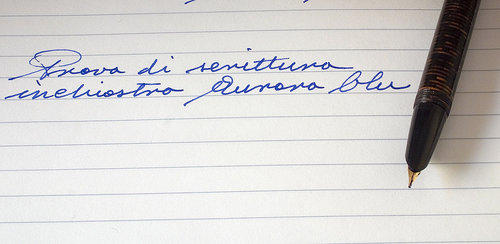 Prova di scrittura
inchiostro Aurora blu